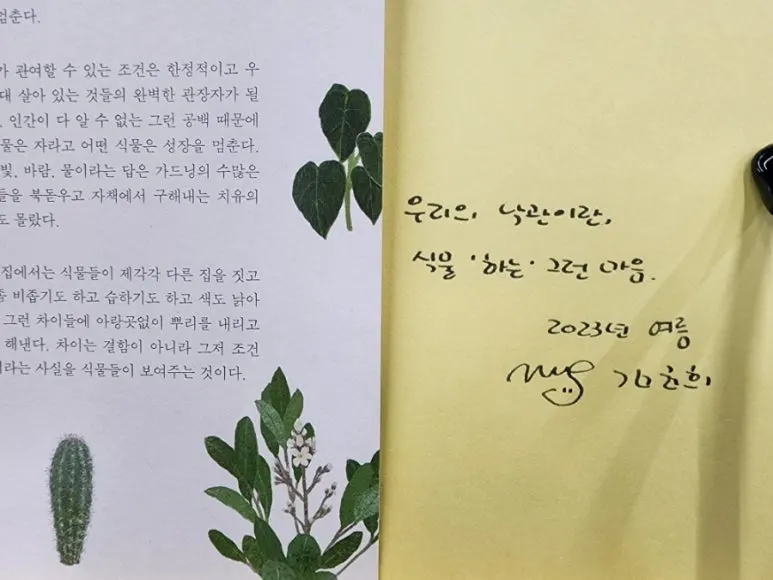 멈춘다.
가 관여할 수 있는 조건은 한정적이고 우
대 살아 있는 것들의 완벽한 관장자가 될
인간이 다 알 수 없는 그런 공백 때문에
물은 자라고 어떤 식물은 성장을 멈춘다.
빛, 바람, 물이라는 답은 가드닝의 수많은
들을 북돋우고 자책에서 구해내는 치유의
도 몰랐다.
집에서는 식물들이 제각각 다른 집을 짓고
비좁기도 하고 습하기도 하고 색도 낡아
그런 차이들에 아랑곳없이 뿌리를 내리고
해낸다. 차이는 결함이 아니라 그저 조건
이라는 사실을 식물들이 보여주는 것이다.
우리의 낙관이란,
식물 '하는' 그런 마음.
2023년 여름